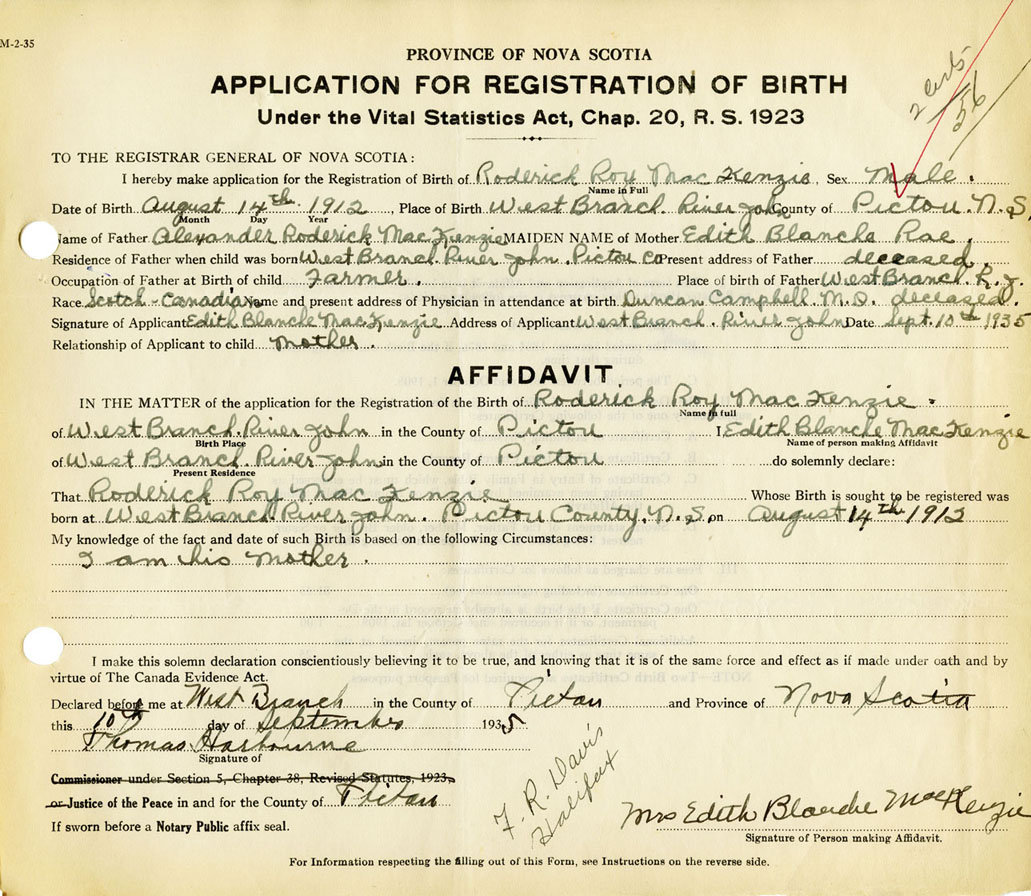 M-2-35
PROVINCE OF NOVA SCOTIA
APPLICATION FOR REGISTRATION OF BIRTH
Under the Vital Statistics Act, Chap. 20, R. S. 1923
2 certs
56
TO THE REGISTRAR GENERAL OF NOVA SCOTIA:
I hereby make application for the Registration of Birth of Roderick Roy MacKenzie, Sex Male.
Name in Full
Date of Birth August 14th 1912, Place of Birth West Branch. River John County of Pictou. N.S
Month Day Year
Name of Father Alexander Roderick MacKenzie MAIDEN NAME of Mother Edith Blanche Rae,
Residence of Father when child was born West Branch. River John. Pictou Co Present address of Father deceased.
Occupation of Father at Birth of child Farmer. Place of birth of Father West Branch. R.J.
Race Scotch-Canadian Name and present address of Physician in attendance at birth Duncan Campbell. M.D. deceased.
Signature of Applicant Edith Blanche MacKenzie Address of Applicant West Branch. River John Date Sept. 10th 1935
Relationship of Applicant to child mother.
AFFIDAVIT.
IN THE MATTER of the application for the Registration of the Birth of Roderick Roy MacKenzie.
Name in full
of West Branch. River John in the County of Pictou I Edith Blanche MacKenzie
Birth Place Name of person making Affidavit
of West Branch. River John in the County of Pictou do solemnly declare:
Present Residence
That Roderick Roy MacKenzie Whose Birth is sought to be registered was
born at West Branch. River John. Pictou County. N.S. on August 14th 1912
My knowledge of the fact and date of such Birth is based on the following Circumstances:
I am his mother.
I make this solemn declaration conscientiously believing it to be true, and knowing that it is of the same force and effect as if made under oath and by
virtue of The Canada Evidence Act.
Declared before me at West Branch in the County of Pictou and Province of Nova Scotia
this 10th day of September 1935
Thomas Harbourne
Signature of
Commissioner under Section 5, Chapter 38, Revised Statutes, 1923,
or Justice of the Peace in and for the County of Pictou
If sworn before a Notary Public affix seal.
F. R. Davis
Halifax
Mrs Edith Blanche MacKenzie
Signature of Person making Affidavit.
For Information respecting the filling out of this Form, see Instructions on the reverse side.